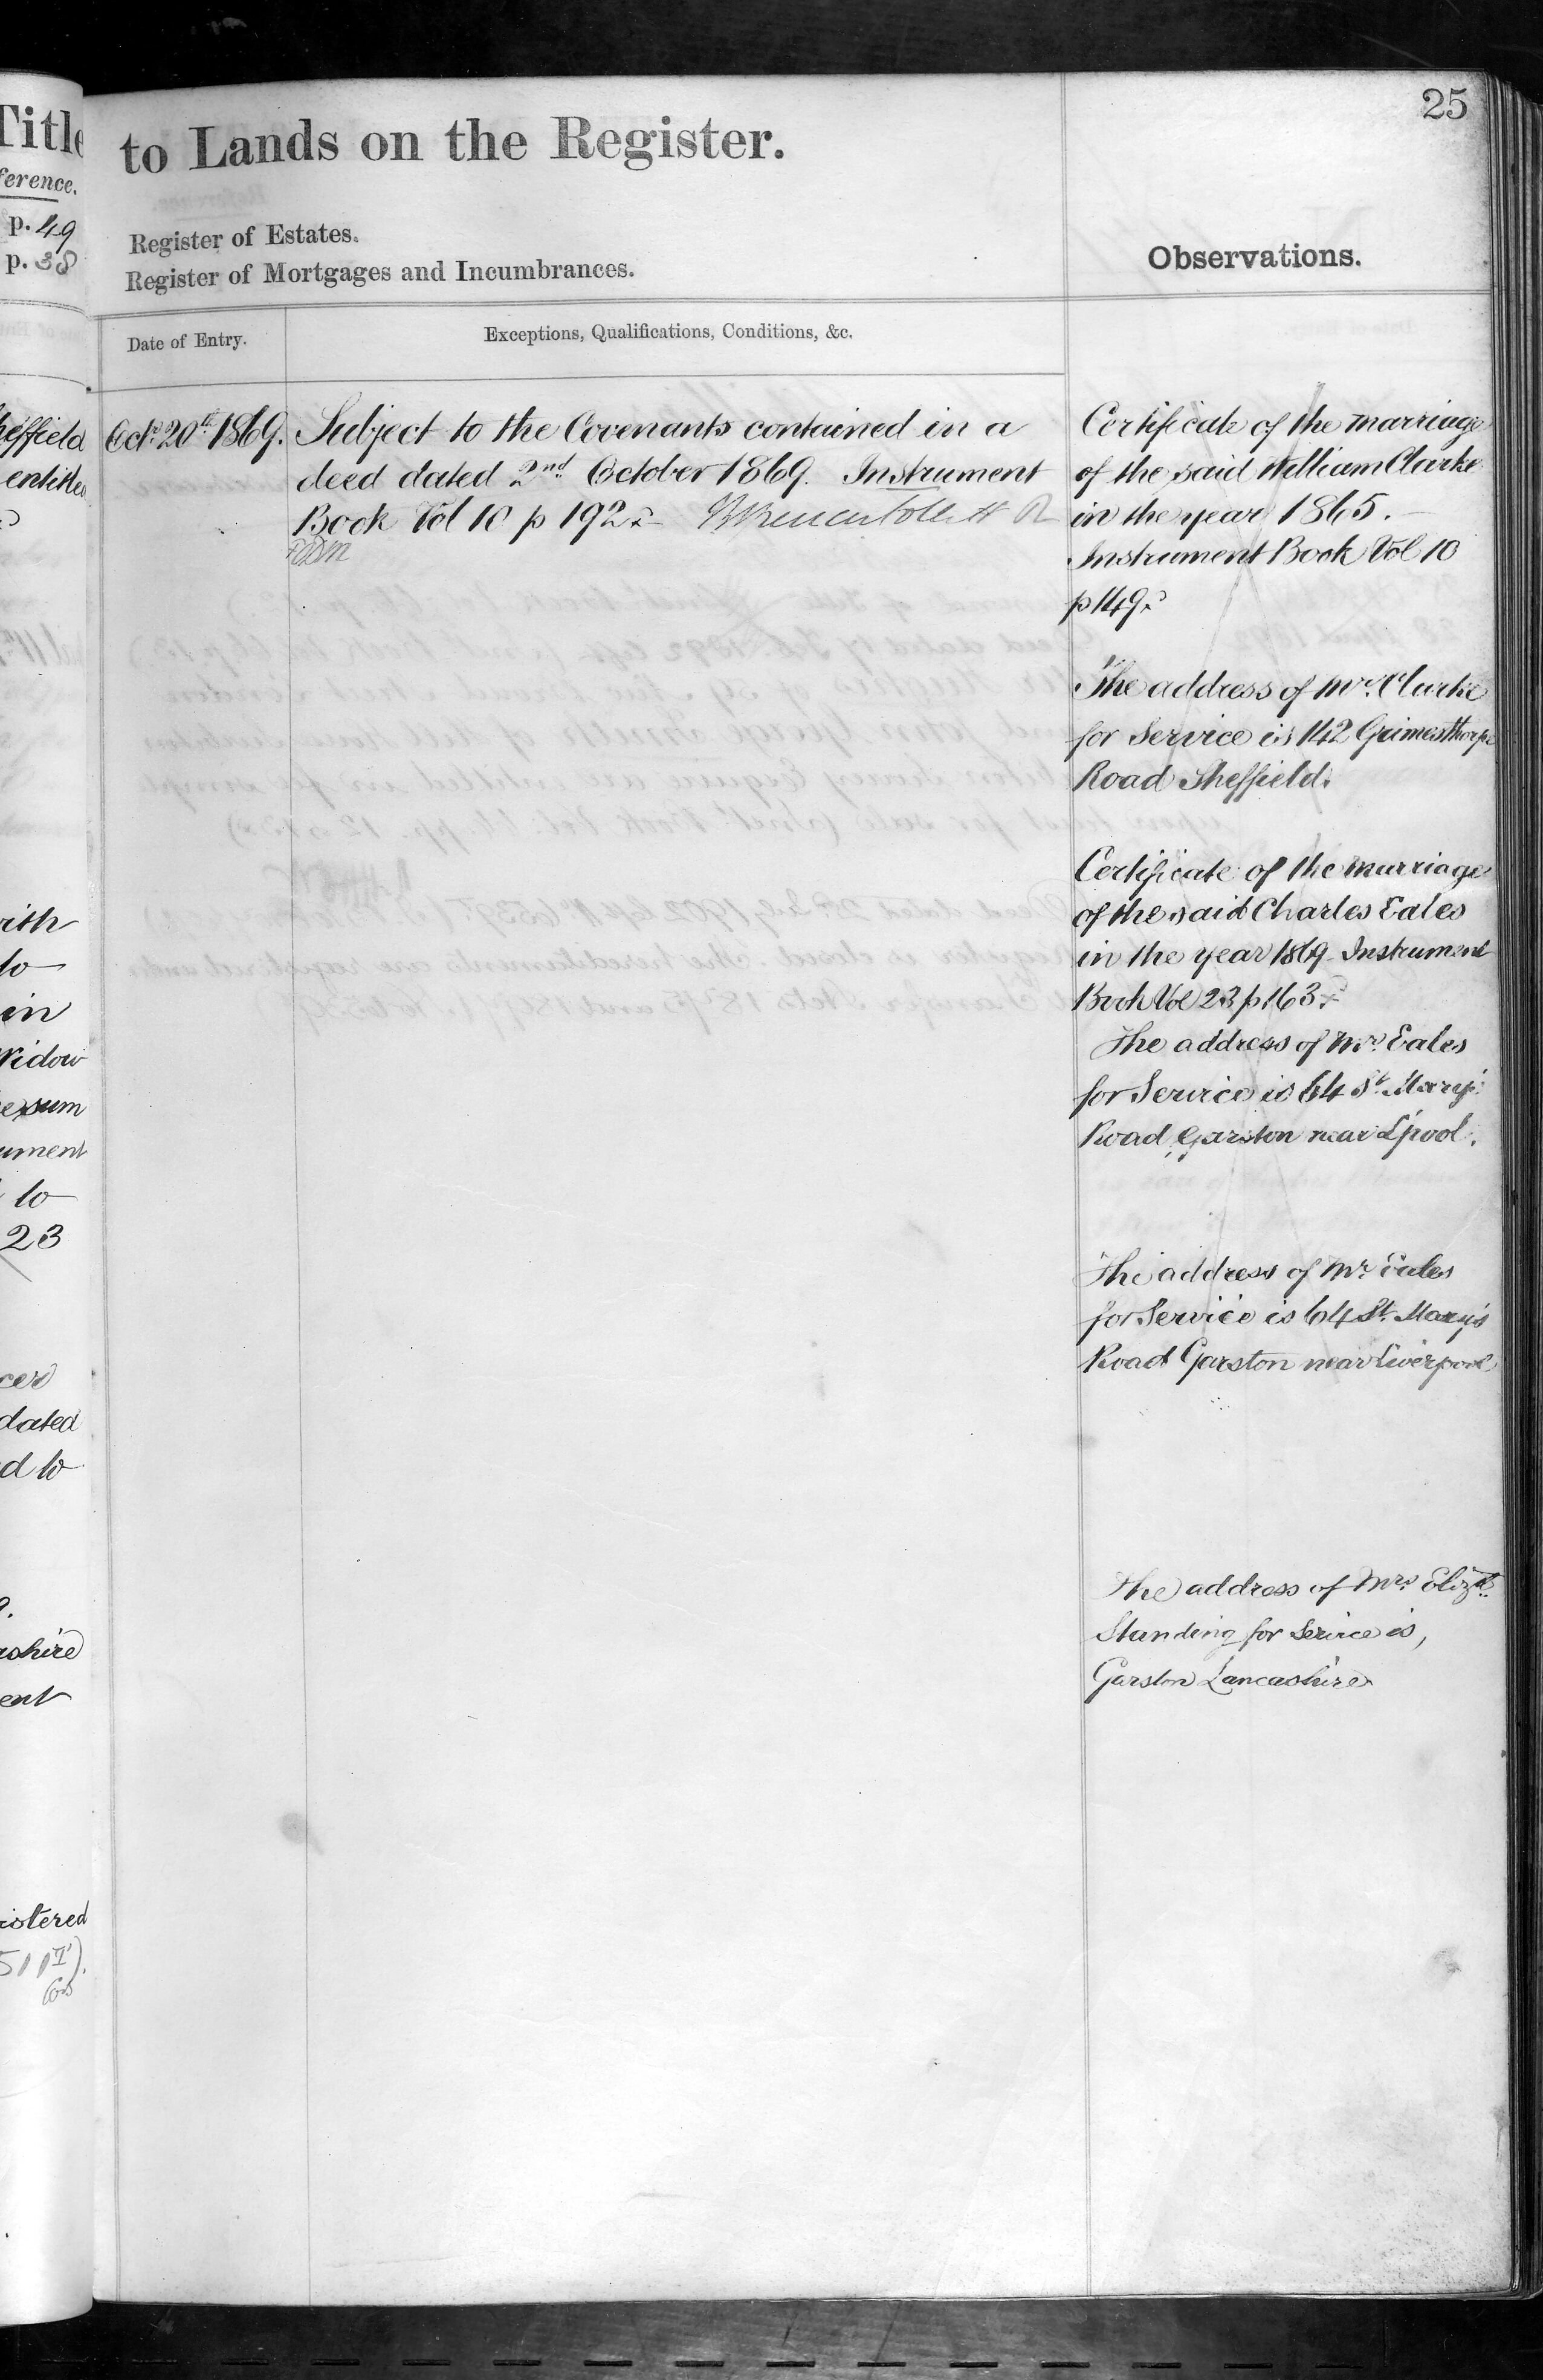 Title
ference.
p. 49
p. 38
heffield
entitled
with
to
in
Widow
sum
ument
to
23
cer
dated
d to
shire
ent
istered
25
to Lands on the Register.
Register of Estates.
Register of Mortgages and Incumbrances.
Observations.
Date of Entry.
Exceptions, Qualifications, Conditions, &c.
Octr. 20th 1869.
Subject to the Covenants contained in a
deed dated 2nd October 1869. Instrument
Book Vol 10 p 192
Certificate of the marriage
of the said William Clarke
in the year 1865.
Instrument Book Vol 10
p 149
The address of Mr. Clarke
for Service is 142 Grimesthorpe
Road Sheffield.
Certificate of the marriage
of the said Charles Eales
in the year 1869 Instrument
Book Vol 23 p 163
The address of Mr. Eales
for Service is 64 St. Mary's
Road, Garston near L'pool.
The address of Mr. Eales
for Service is 64 St. Mary's
Road Garston near Liverpool
The address of Mrs. Elizth.
Standing for Service is,
Garston Lancashire